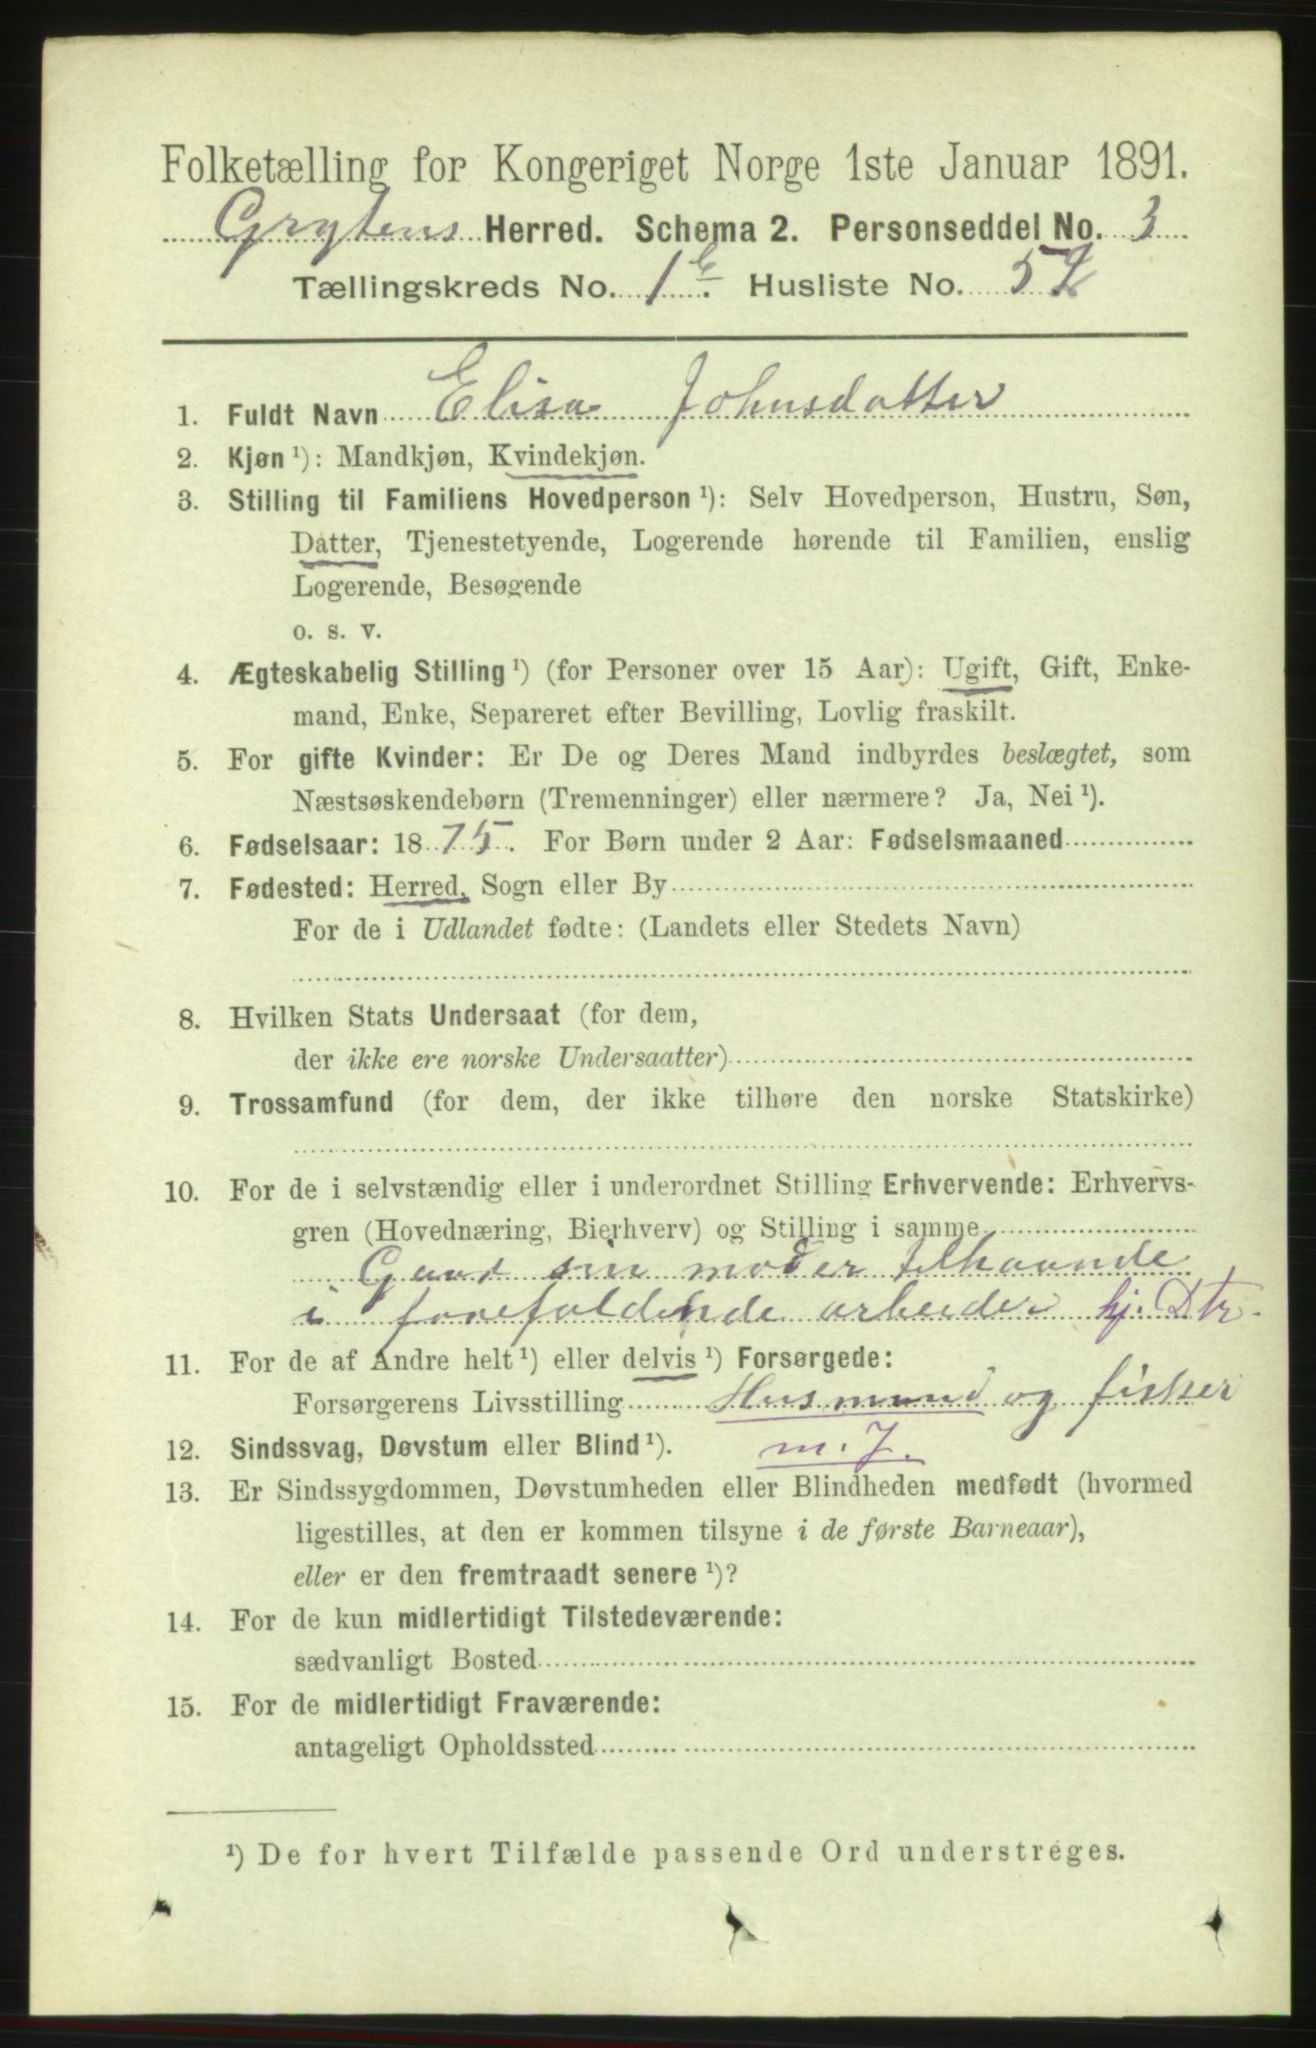 Folketælling for Kongeriget Norge 1ste Januar 1891.
Grytens Herred. Schema 2. Personseddel No. 3
Tællingskreds No. 1 Husliste No. 52
1. Fuldt Navn Elisa Johnsdatter
2. Kjøn ¹): Mandkjøn, Kvindekjøn.
3. Stilling til Familiens Hovedperson ¹): Selv Hovedperson, Hustru, Søn,
Datter, Tjenestetyende, Logerende hørende til Familien, enslig
Logerende, Besøgende
o. s. v.
4. Ægteskabelig Stilling ¹) (for Personer over 15 Aar): Ugift, Gift, Enke-
mand, Enke, Separeret efter Bevilling, Lovlig fraskilt.
5. For gifte Kvinder: Er De og Deres Mand indbyrdes beslægtet, som
Næstsøskendebørn (Tremenninger) eller nærmere? Ja, Nei ¹).
6. Fødselsaar: 1875. For Børn under 2 Aar: Fødselsmaaned
7. Fødested: Herred, Sogn eller By
For de i Udlandet fødte: (Landets eller Stedets Navn)
8. Hvilken Stats Undersaat (for dem,
der ikke ere norske Undersaatter)
9. Trossamfund (for dem, der ikke tilhøre den norske Statskirke)
10. For de i selvstændig eller i underordnet Stilling Erhvervende: Erhvervs-
gren (Hovednæring, Bierhverv) og Stilling i samme
Gaar sin moder tilhaande
i forefaldende arbeider hj. Dtr.
11. For de af Andre helt ¹) eller delvis ¹) Forsørgede:
Forsørgerens Livsstilling Husmand og fisker
12. Sindssvag, Døvstum eller Blind ¹). m. J.
13. Er Sindssygdommen, Døvstumheden eller Blindheden medfødt (hvormed
ligestilles, at den er kommen tilsyne i de første Barneaar),
eller er den fremtraadt senere ¹)?
14. For de kun midlertidigt Tilstedeværende:
sædvanligt Bosted
15. For de midlertidigt Fraværende:
antageligt Opholdssted
¹) De for hvert Tilfælde passende Ord understreges.